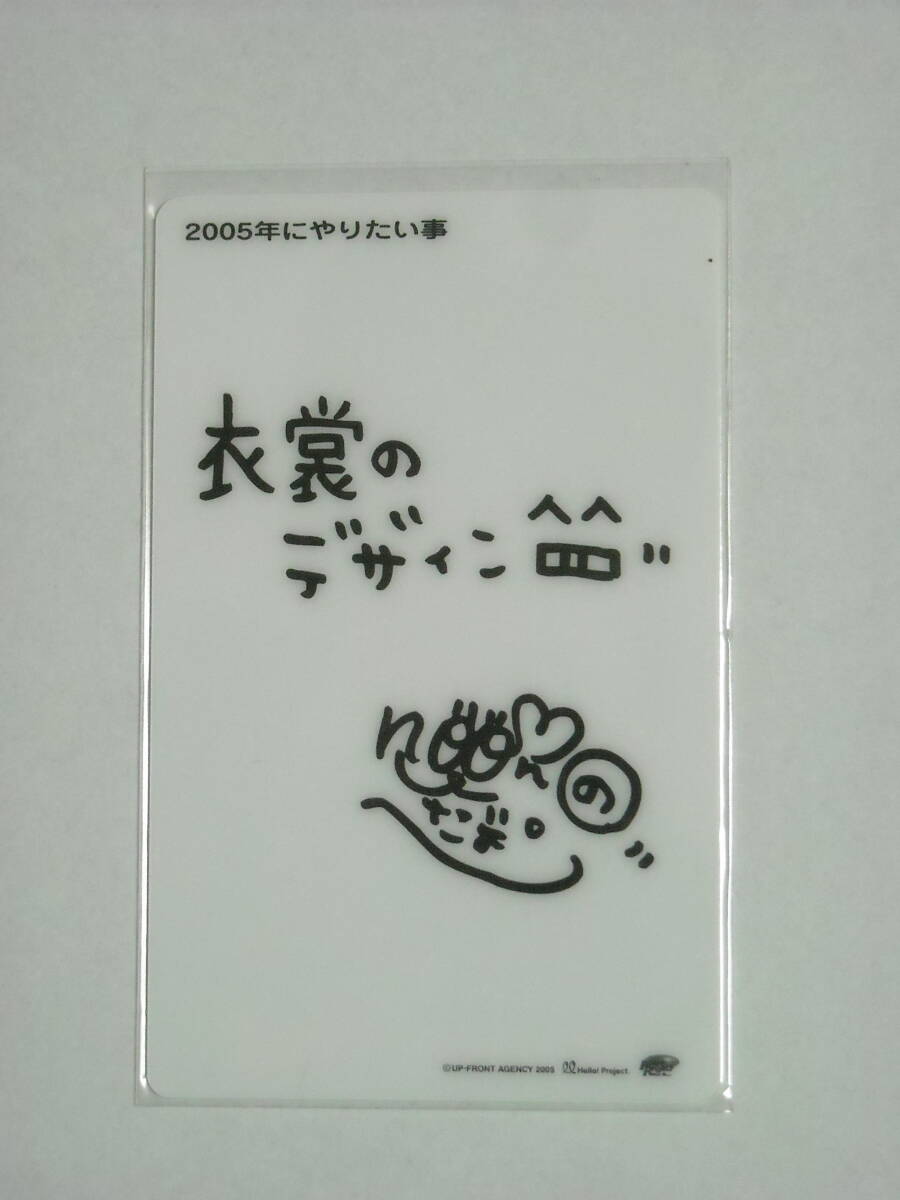 2005年にやりたい事
衣裳の
デザイン
の
だよ。
©UP-FRONT AGENCY 2005 Hello! Project